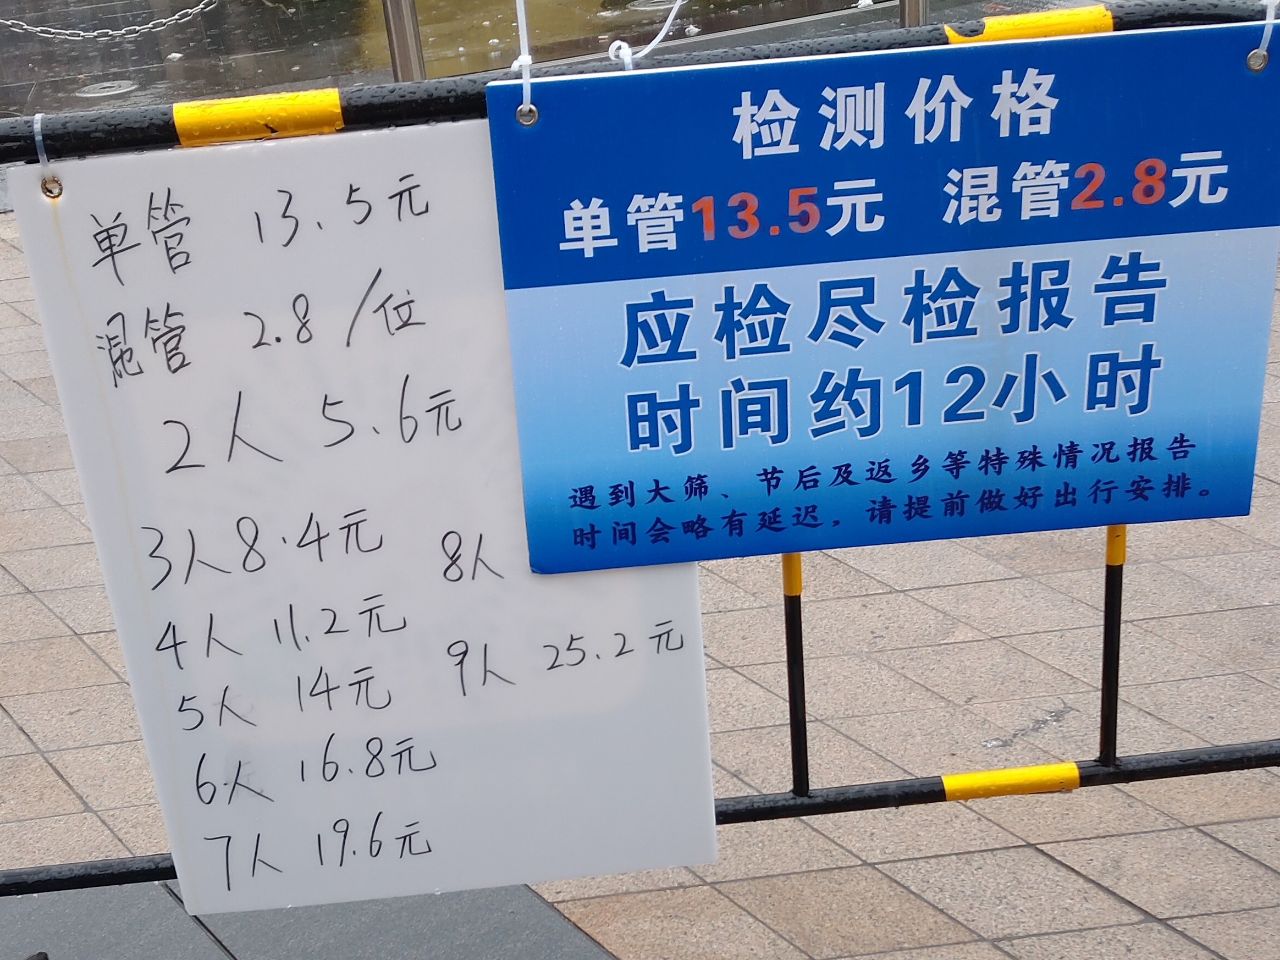 单管 13.5元
混管 2.8/位
2人 5.6元
3人8.4元
4人 11.2元
5人 14元
6人 16.8元
7人 19.6元
8人
9人 25.2元
检测价格
单管13.5元 混管2.8元
应检尽检报告
时间约12小时
遇到大筛、节后及返乡等特殊情况报告
时间会略有延迟，请提前做好出行安排。